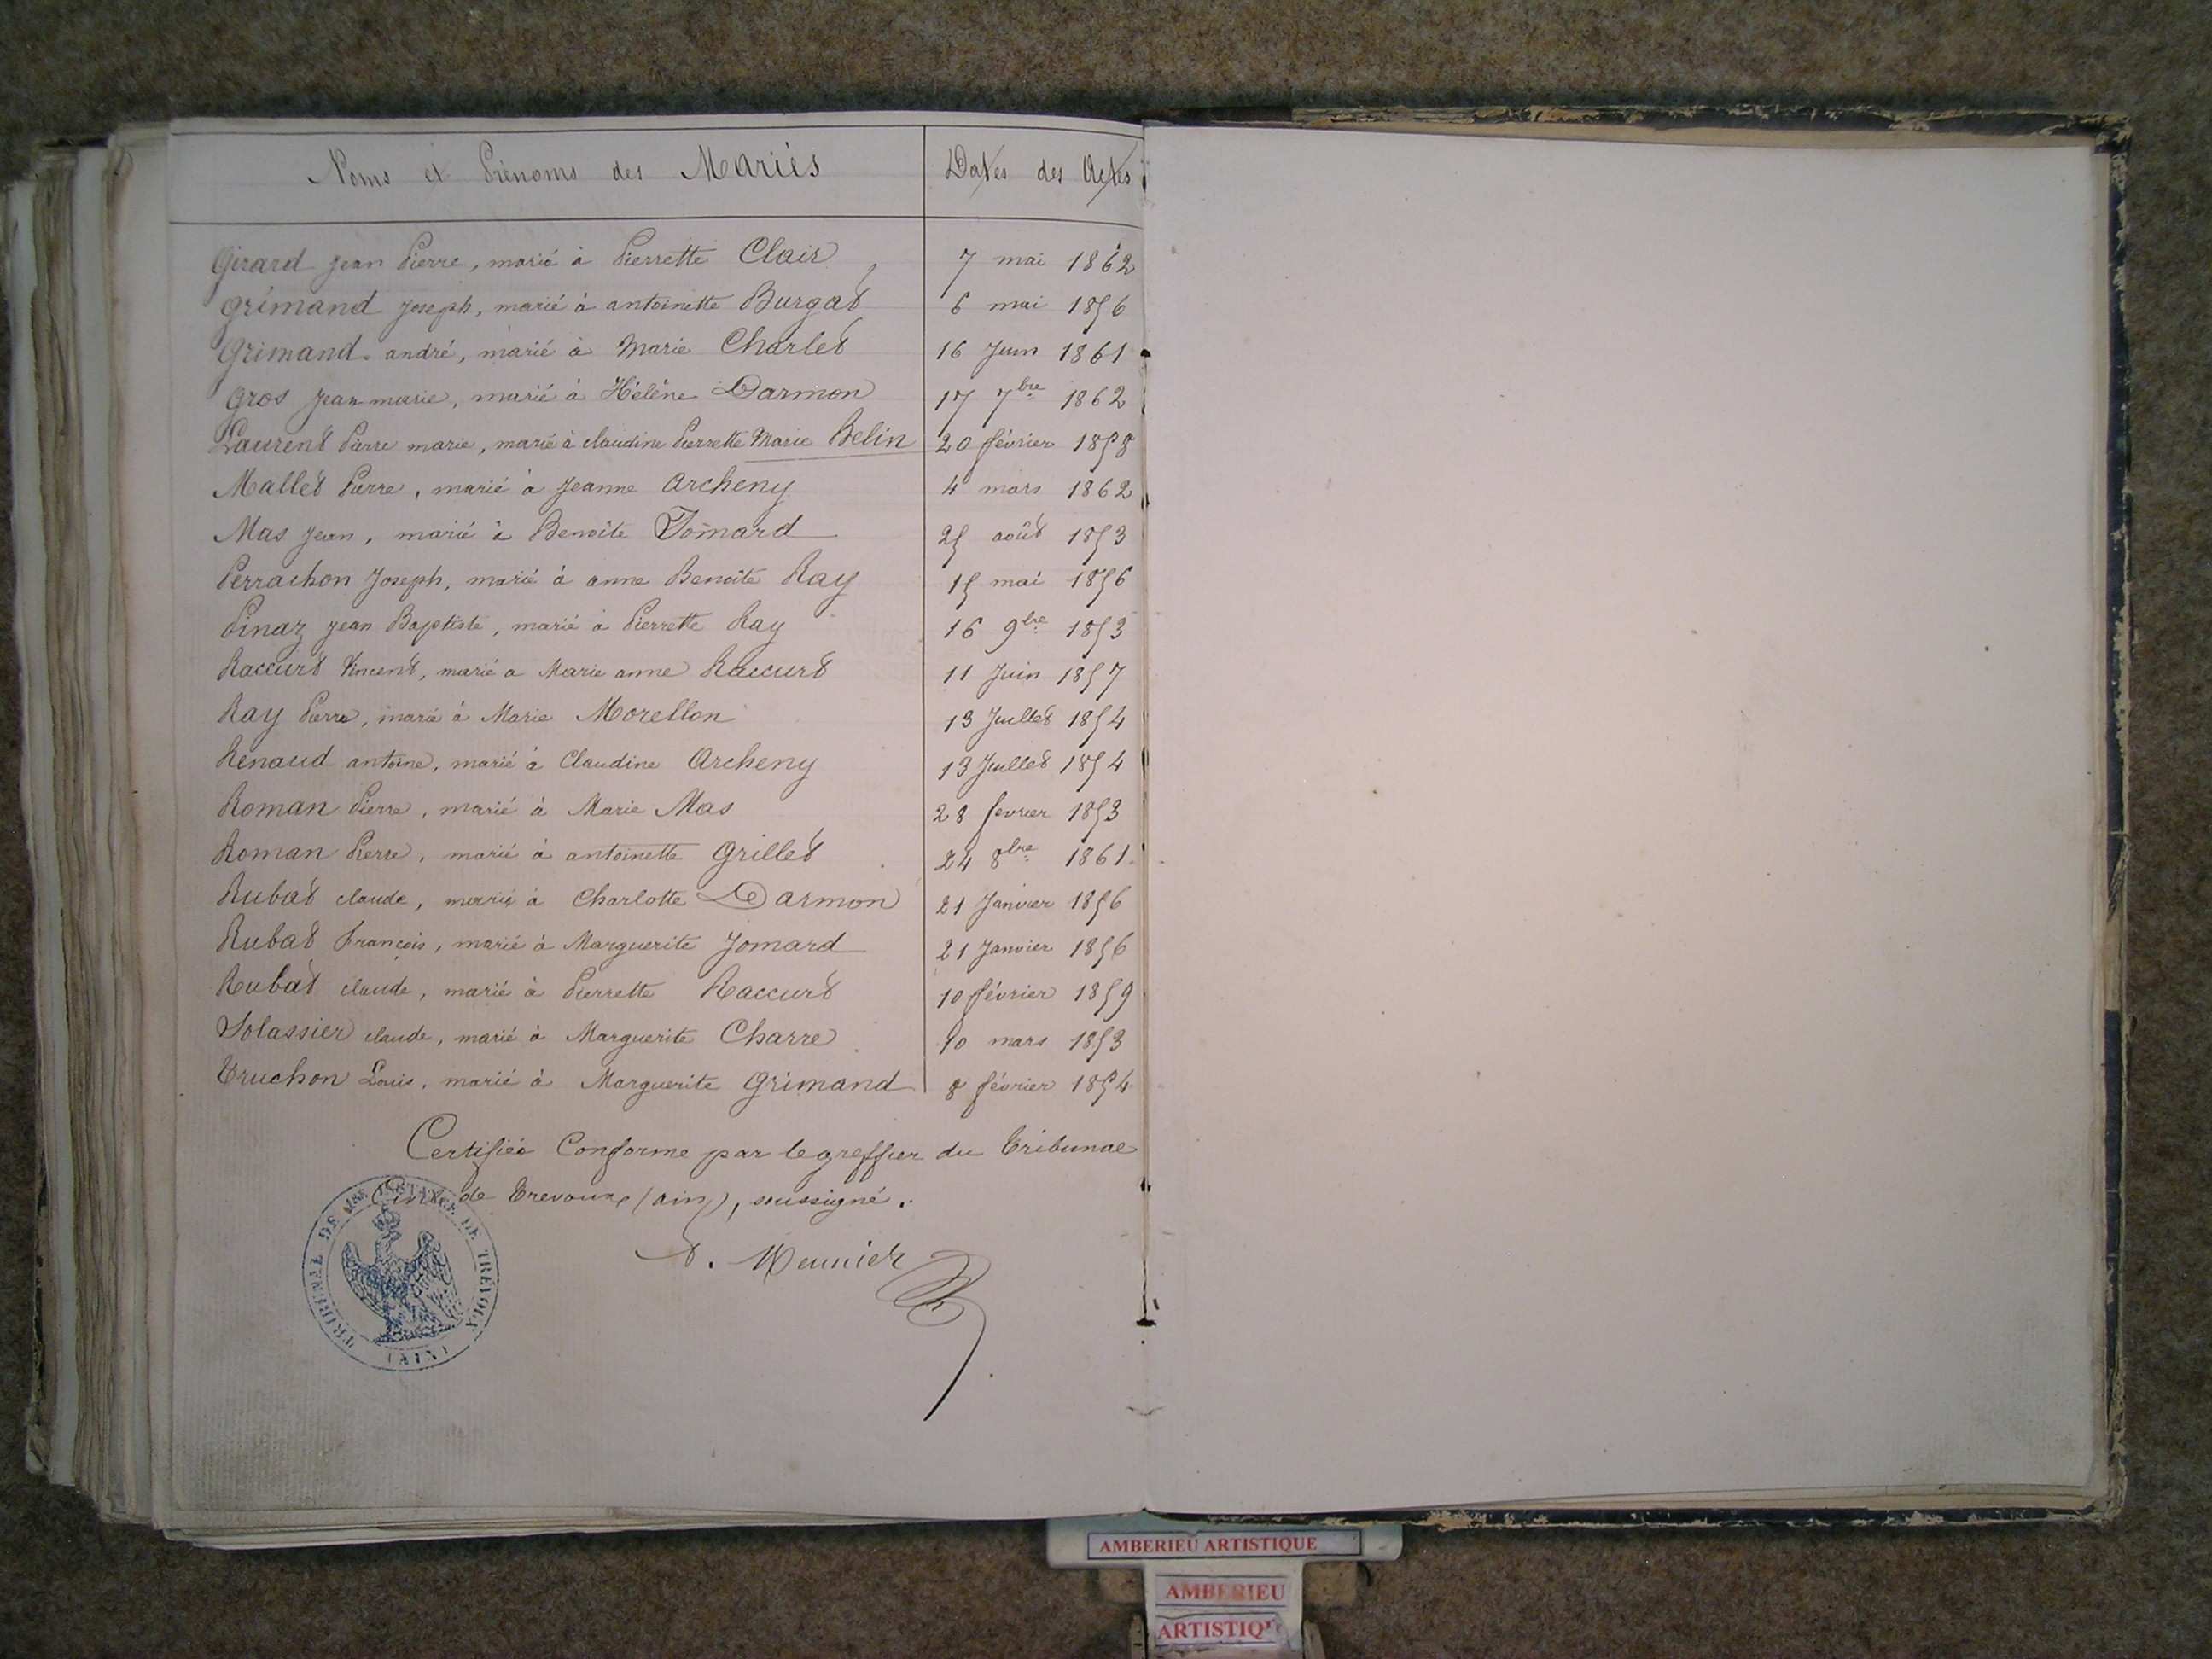 Noms et Prénoms des Mariés
Dates des Actes
Girard Jean Pierre, marié à Pierrette Clair
7 mai 1862
Grimand Joseph, marié à antoinette Burgat
6 mai 1856
Grimand andré, marié à Marie Charlet
16 Juin 1861
Gros Jean marie, marié à Hélène Darmon
17 7bre 1862
Laurent Pierre marie, marié à claudine Pierrette Marie Belin
20 février 1858
Mallet Pierre, marié à Jeanne Archeny
4 mars 1862
Mas Jean, marié à Benoîte Jomard
25 août 1853
Perrachon Joseph, marié à anne Benoîte Ray
15 mai 1856
Pinaz Jean Baptiste, marié à Pierrette Ray
16 9bre 1853
Raccurt Vincent, marié a Marie anne Raccurt
11 Juin 1857
Ray Pierre, marié à Marie Morellon
13 Juillet 1854
Renaud antoine, marié à Claudine Archeny
13 Juillet 1854
Roman Pierre, marié à Marie Mas
28 fevrier 1853
Roman Pierre, marié à antoinette Grillet
24 8bre 1861
Rubat claude, marié à Charlotte Darmon
21 Janvier 1856
Rubat françois, marié à Marguerite Jomard
21 Janvier 1856
Rubat claude, marié à Pierrette Raccurt
10 février 1859
Solassier claude, marié à Marguerite Charre
10 mars 1853
Truchon Louis, marié à Marguerite Grimand
8 février 1854
Certifiée Conforme par le greffier du Tribunal
Civil de Trevoux (ain), soussigné.
Meunier
TRIBUNAL DE 1RE INSTANCE DE TRÉVOUX
(AIN)
AMBERIEU ARTISTIQUE
AMBERIEU
ARTISTIQ